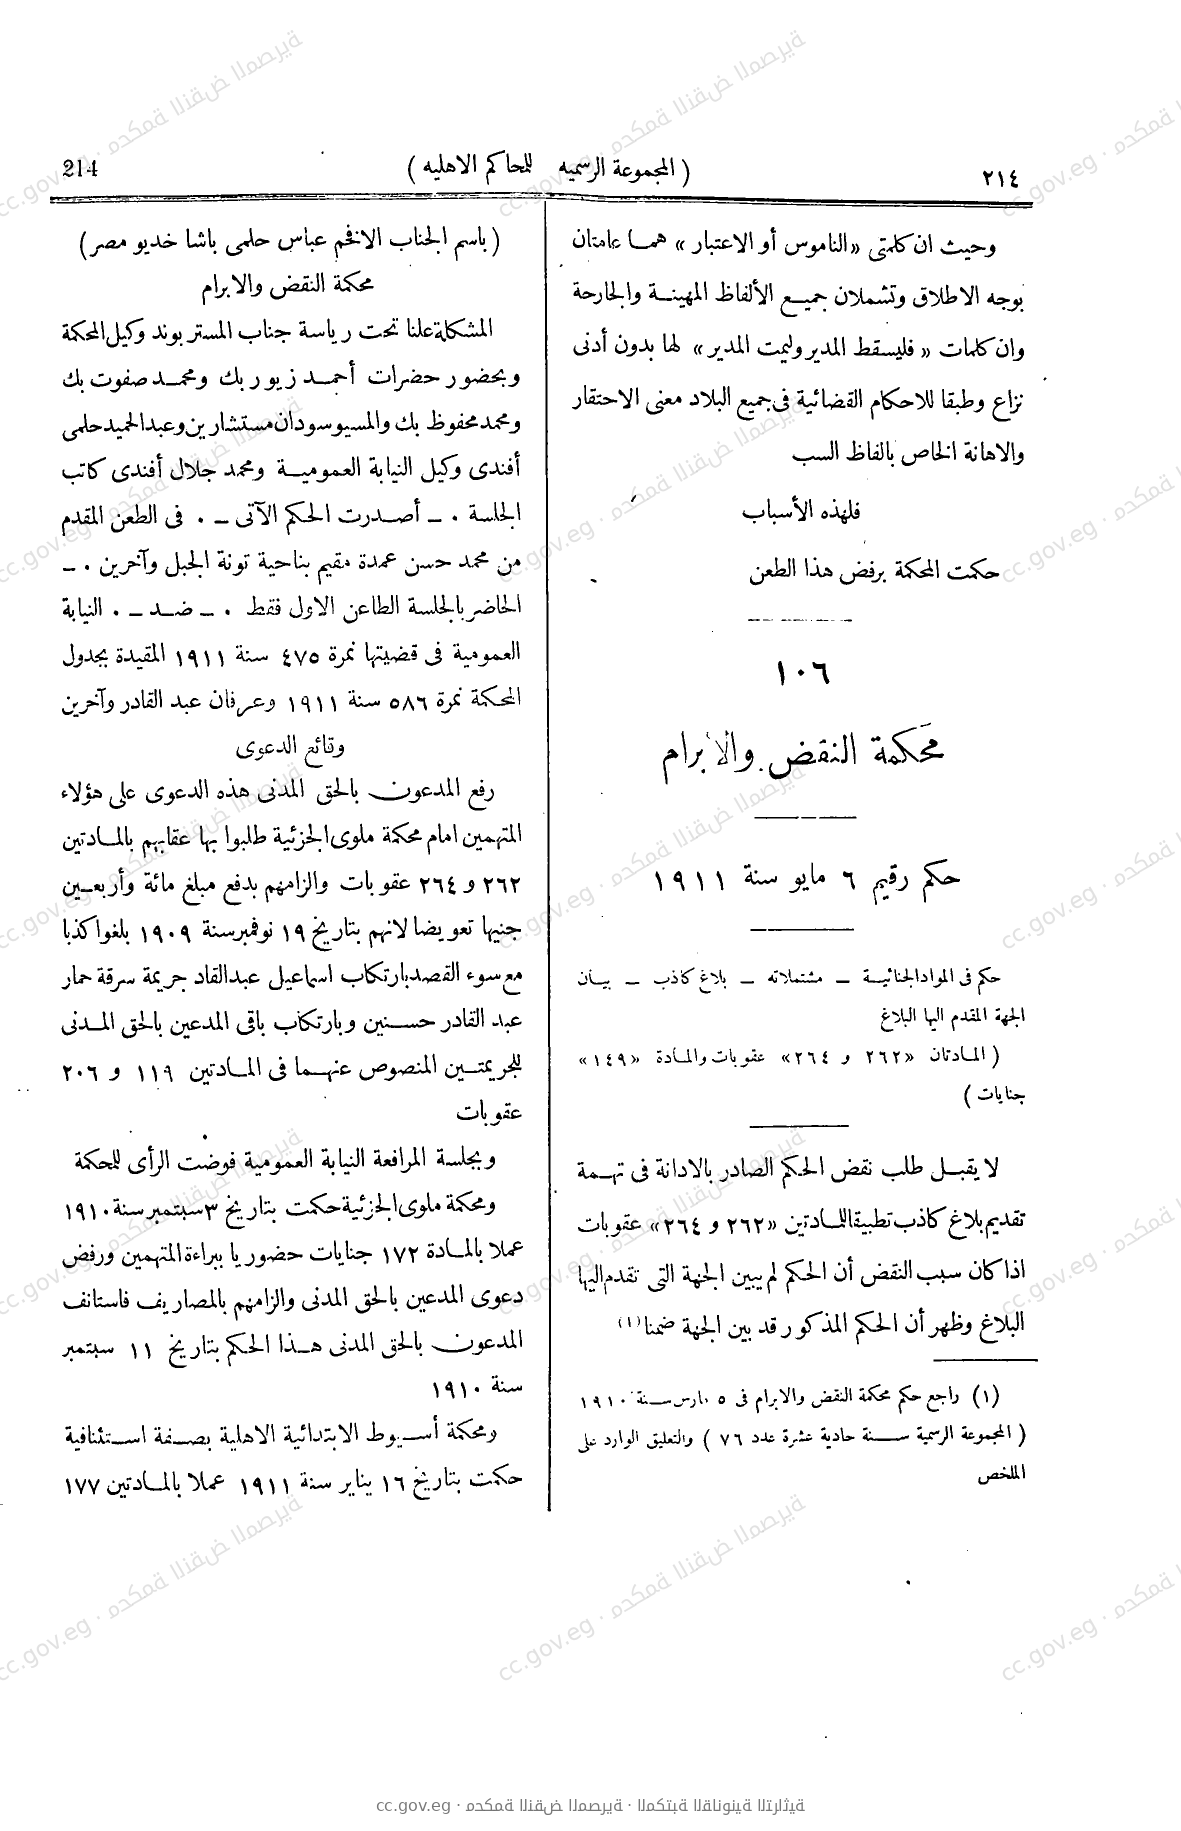 ٢١٤
( المجموعة الرسميه للمحاكم الاهليه )
214
وحيث ان كلمتى «الناموس أو الاعتبار» هما عامتان
بوجه الاطلاق وتشملان جميع الألفاظ المهينة والجارحة
وان كلمات « فليسقط المدير وليمت المدير» لها بدون أدنى
نزاع وطبقا للاحكام القضائية فى جميع البلاد معنى الاحتقار
والاهانة الخاص بالفاظ السب
فلهذه الأسباب
حكمت المحكمة برفض هذا الطعن
١٠٦
محكمة النقض والابرام
حكم رقيم ٦ مايو سنة ١٩١١
حكم فى المواد الجنائية – مشتملاته – بلاغ كاذب – بيان
الجهة المقدم اليها البلاغ
( المادتان «٢٦٢ و ٢٦٤» عقوبات والمادة «١٤٩»
جنايات )
لا يقبل طلب نقض الحكم الصادر بالادانة فى تهمة
تقديم بلاغ كاذب تطبيقا للمادتين «٢٦٢ و ٢٦٤» عقوبات
اذا كان سبب النقض أن الحكم لم يبين الجهة التى تقدم اليها
البلاغ وظهر أن الحكم المذكور قد بين الجهة ضمنا (١)
(١) راجع حكم محكمة النقض والابرام فى ٥ مارس سنة ١٩١٠
( المجموعة الرسمية سنة حادية عشرة عدد ٧٦ ) والتعليق الوارد على
الملخص
( باسم الجناب الافخم عباس حلمى باشا خديو مصر )
محكمة النقض والابرام
المشكلة علنا تحت رياسة جناب المستر بوند وكيل المحكمة
وبحضور حضرات أحمد زيور بك ومحمد صفوت بك
ومحمد محفوظ بك والمسيو سودان مستشارين وعبد الحميد حلمى
أفندى وكيل النيابة العمومية ومحمد جلال أفندى كاتب
الجلسة . – أصدرت الحكم الآتى – . فى الطعن المقدم
من محمد حسن عمدة مقيم بناحية تونة الجبل وآخرين . –
الحاضر بالجلسة الطاعن الاول فقط . – ضد – . النيابة
العمومية فى قضيتها نمرة ٤٧٥ سنة ١٩١١ المقيدة بجدول
المحكمة نمرة ٥٨٦ سنة ١٩١١ وعرفان عبد القادر وآخرين
وقائع الدعوى
رفع المدعون بالحق المدنى هذه الدعوى على هؤلاء
المتهمين امام محكمة ملوى الجزئية طلبوا بها عقابهم بالمادتين
٢٦٢ و ٢٦٤ عقوبات والزامهم بدفع مبلغ مائة وأربعين
جنيها تعويضا لانهم بتاريخ ١٩ نوفمبر سنة ١٩٠٩ بلغوا كذبا
مع سوء القصد بارتكاب اسماعيل عبد القاد جريمة سرقة حمار
عبد القادر حسنين وبارتكاب باقى المدعين بالحق المدنى
للجريمتين المنصوص عنهما فى المادتين ١١٩ و ٢٠٦
عقوبات
وبجلسة المرافعة النيابة العمومية فوضت الرأى للمحكمة
ومحكمة ملوى الجزئية حكمت بتاريخ ٣ سبتمبر سنة ١٩١٠
عملا بالمادة ١٧٢ جنايات حضوريا ببراءة المتهمين ورفض
دعوى المدعين بالحق المدنى والزامهم بالمصاريف فاستانف
المدعون بالحق المدنى هذا الحكم بتاريخ ١١ سبتمبر
سنة ١٩١٠
ومحكمة أسيوط الابتدائية الاهلية بصفة استئنافية
حكمت بتاريخ ١٦ يناير سنة ١٩١١ عملا بالمادتين ١٧٧
cc.gov.eg · محكمة النقض المصرية · المكتبة القانونية التراثية